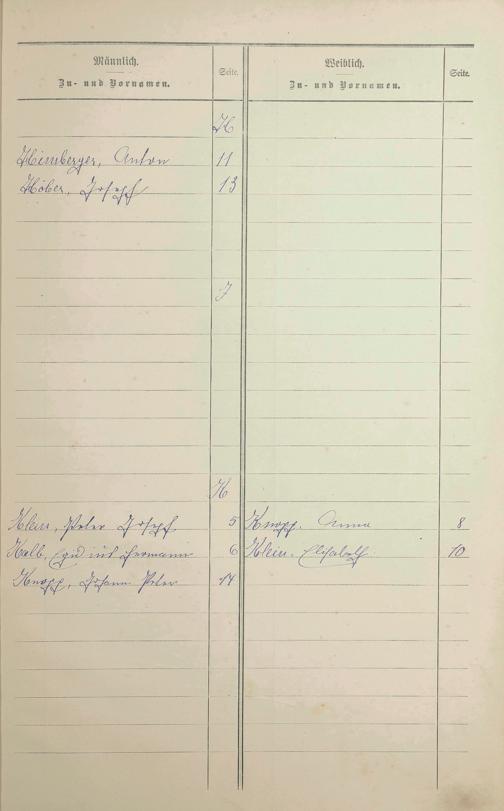 Männlich.
Zu- und Vornamen.
Seite.
Weiblich.
Zu- und Vornamen.
Seite.
H
Heimberger, Anton 11
Höber, Joseph 13
J
K
Klein, Peter Joseph 5 Knopp, Anna 8
Kalb, Egidius Hermann 6 Klein, Elisabeth 10
Knopp, Johann Peter 14